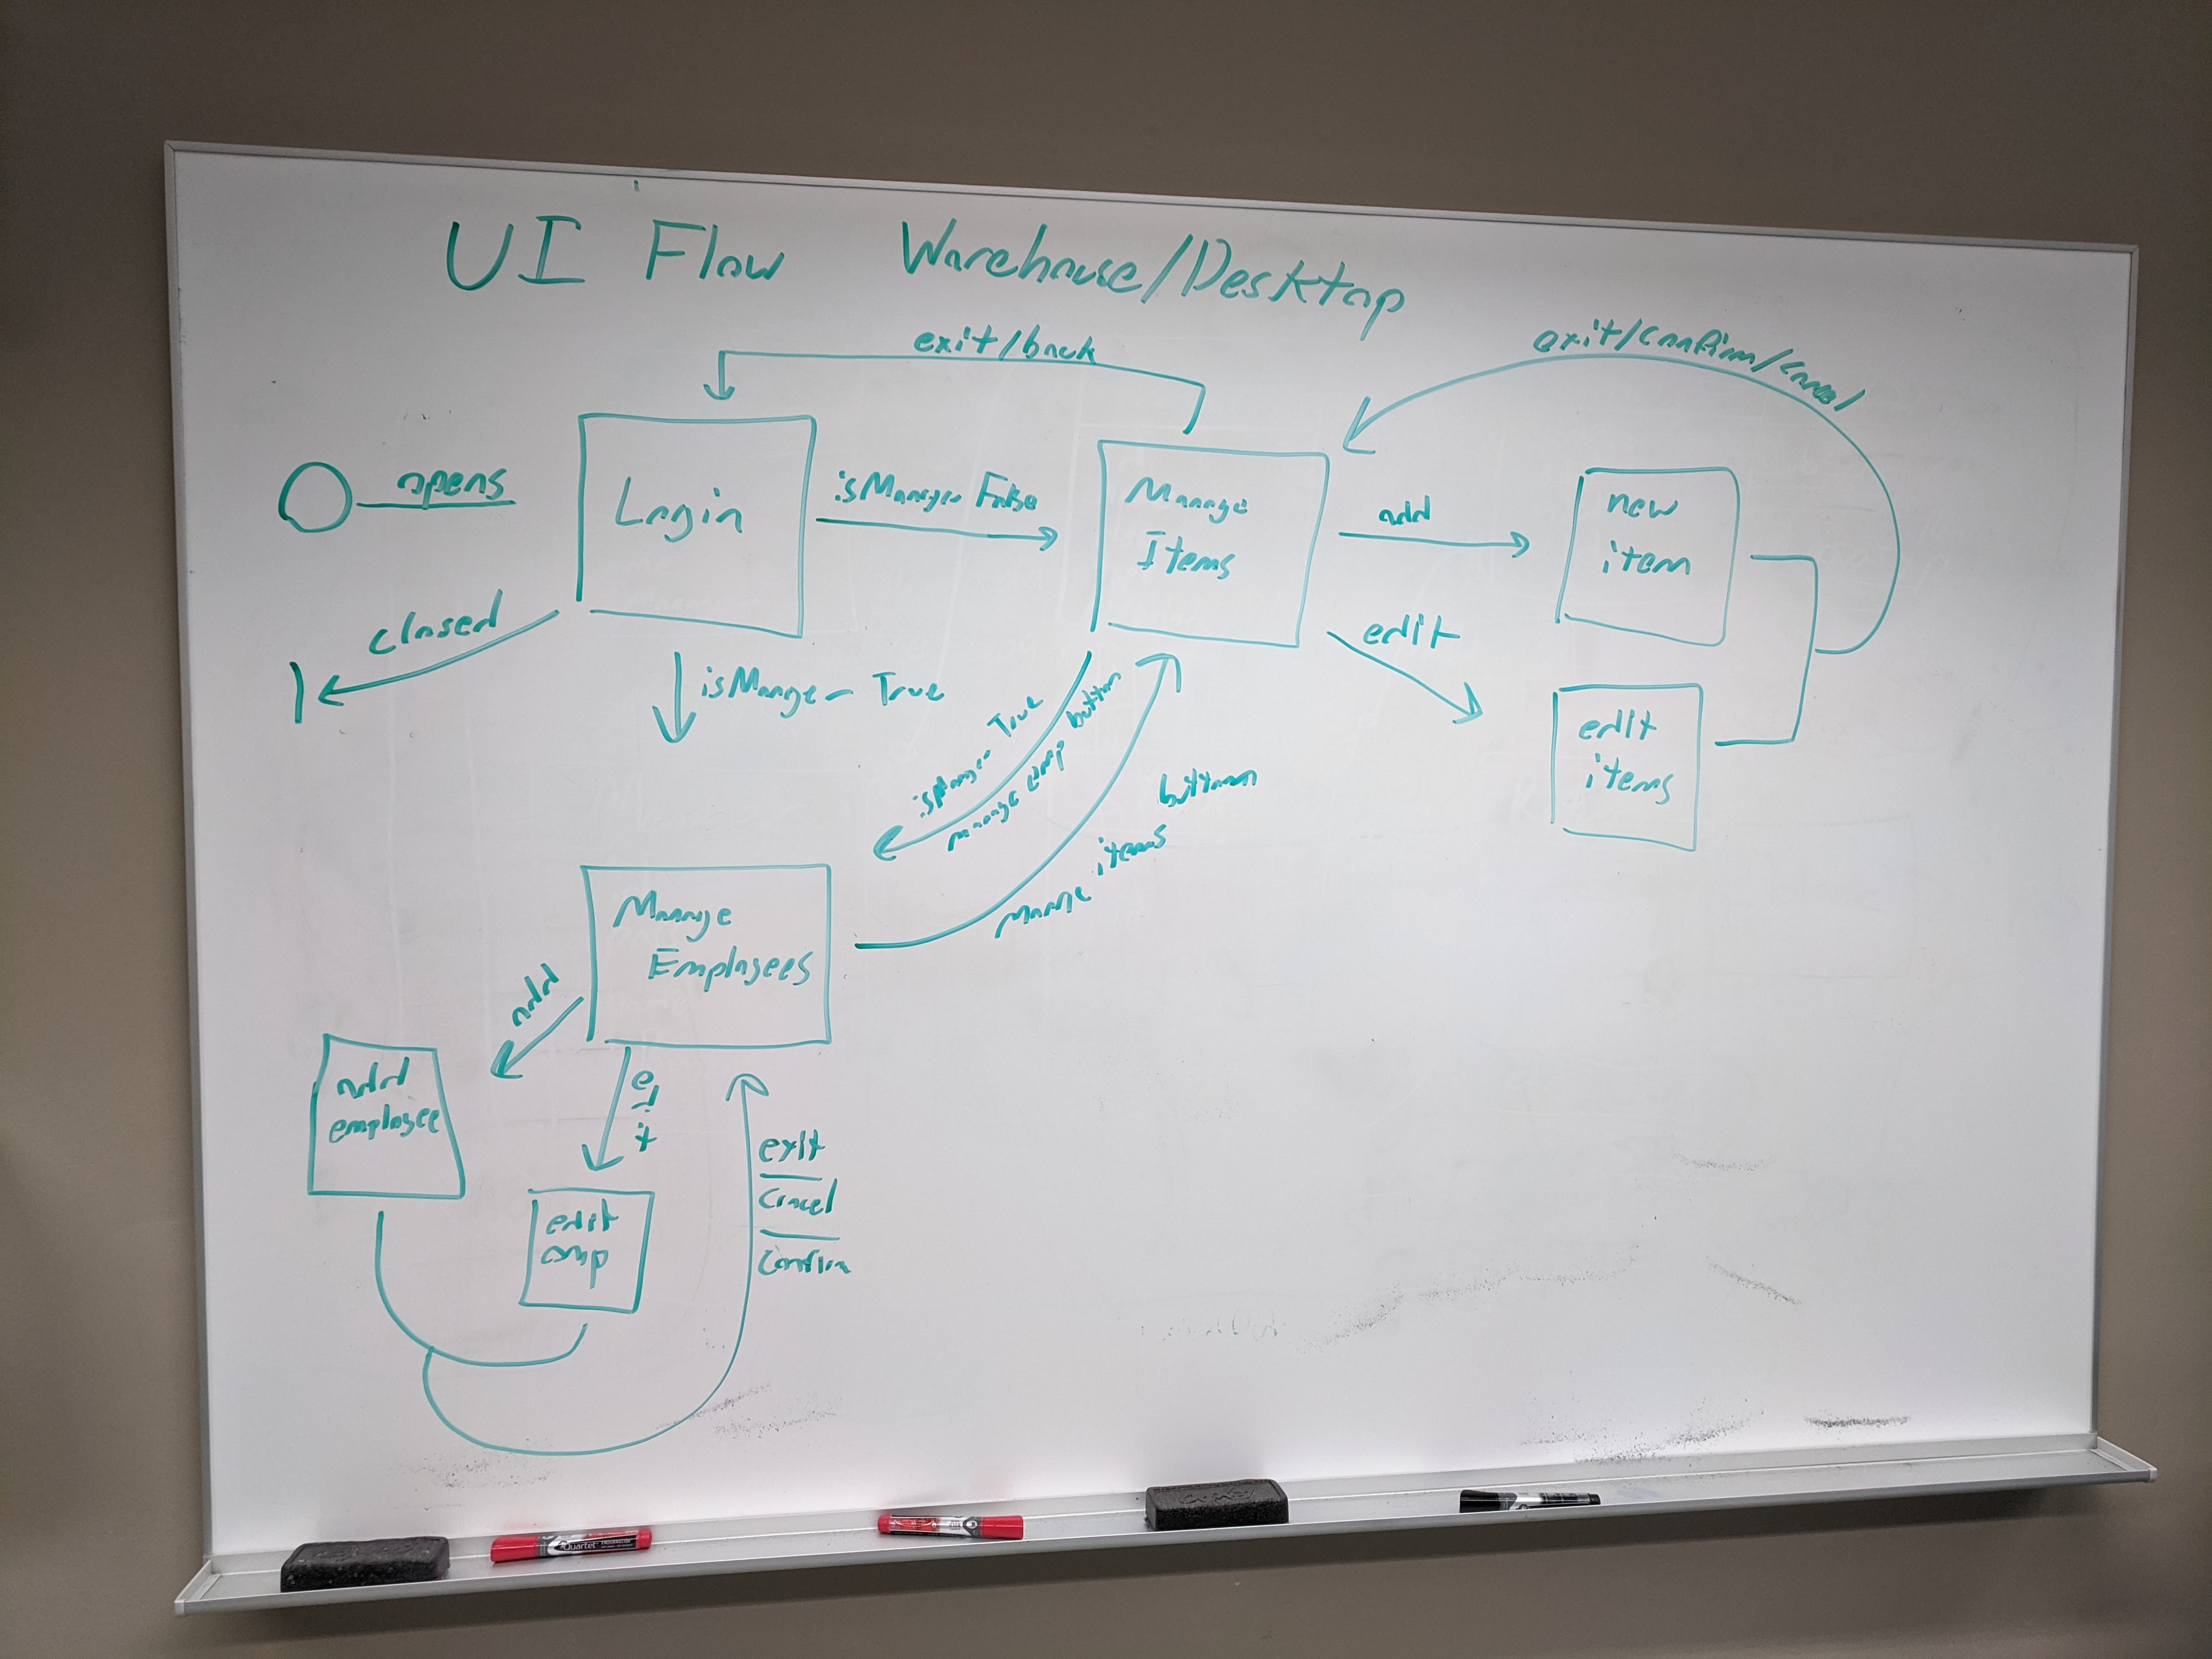 UI Flow Warehouse/Desktop
exit/back
exit/confirm/cancel
opens
Login
isManager False
Manage
Items
add
new
item
closed
isManger True
edit
edit
items
isManger True
manage emp button
manage items button
Manage
Employees
add
add
employee
edit
edit
emp
exit
cancel
confirm
Quartet